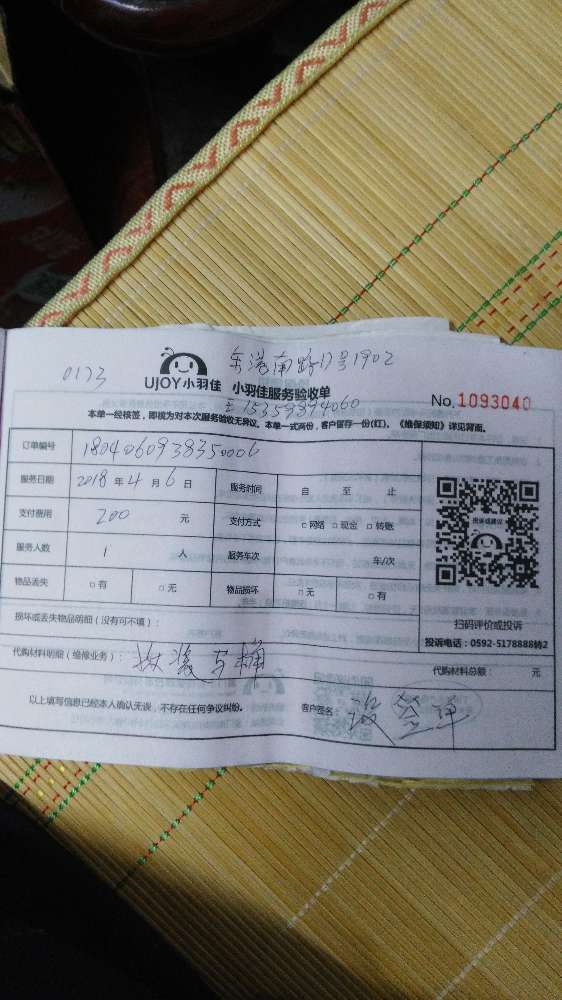 东港南路17号1902
0173
UJOY小羽佳 小羽佳服务验收单
15359894060
No.1093040
本单一经核签，即视为对本次服务验收无异议。本单一式两份，客户留存一份(红)。《维保须知》详见背面。
订单编号 1804060938350006
服务日期 2018 年 4 月 6 日 服务时间 自 至 止
支付费用 200 元 支付方式 □网络 □现金 □转账
服务人数 1 人 服务车次 车/次
物品丢失 □有 □无 物品损坏 □无 □有
投诉或建议
扫码评价或投诉
投诉电话：0592-5178888转2
损坏或丢失物品明细（没有可不填）：
代购材料明细（维修业务）： 拆装马桶
代购材料总额： 元
以上填写信息已经本人确认无误，不存在任何争议纠纷。
客户签名：